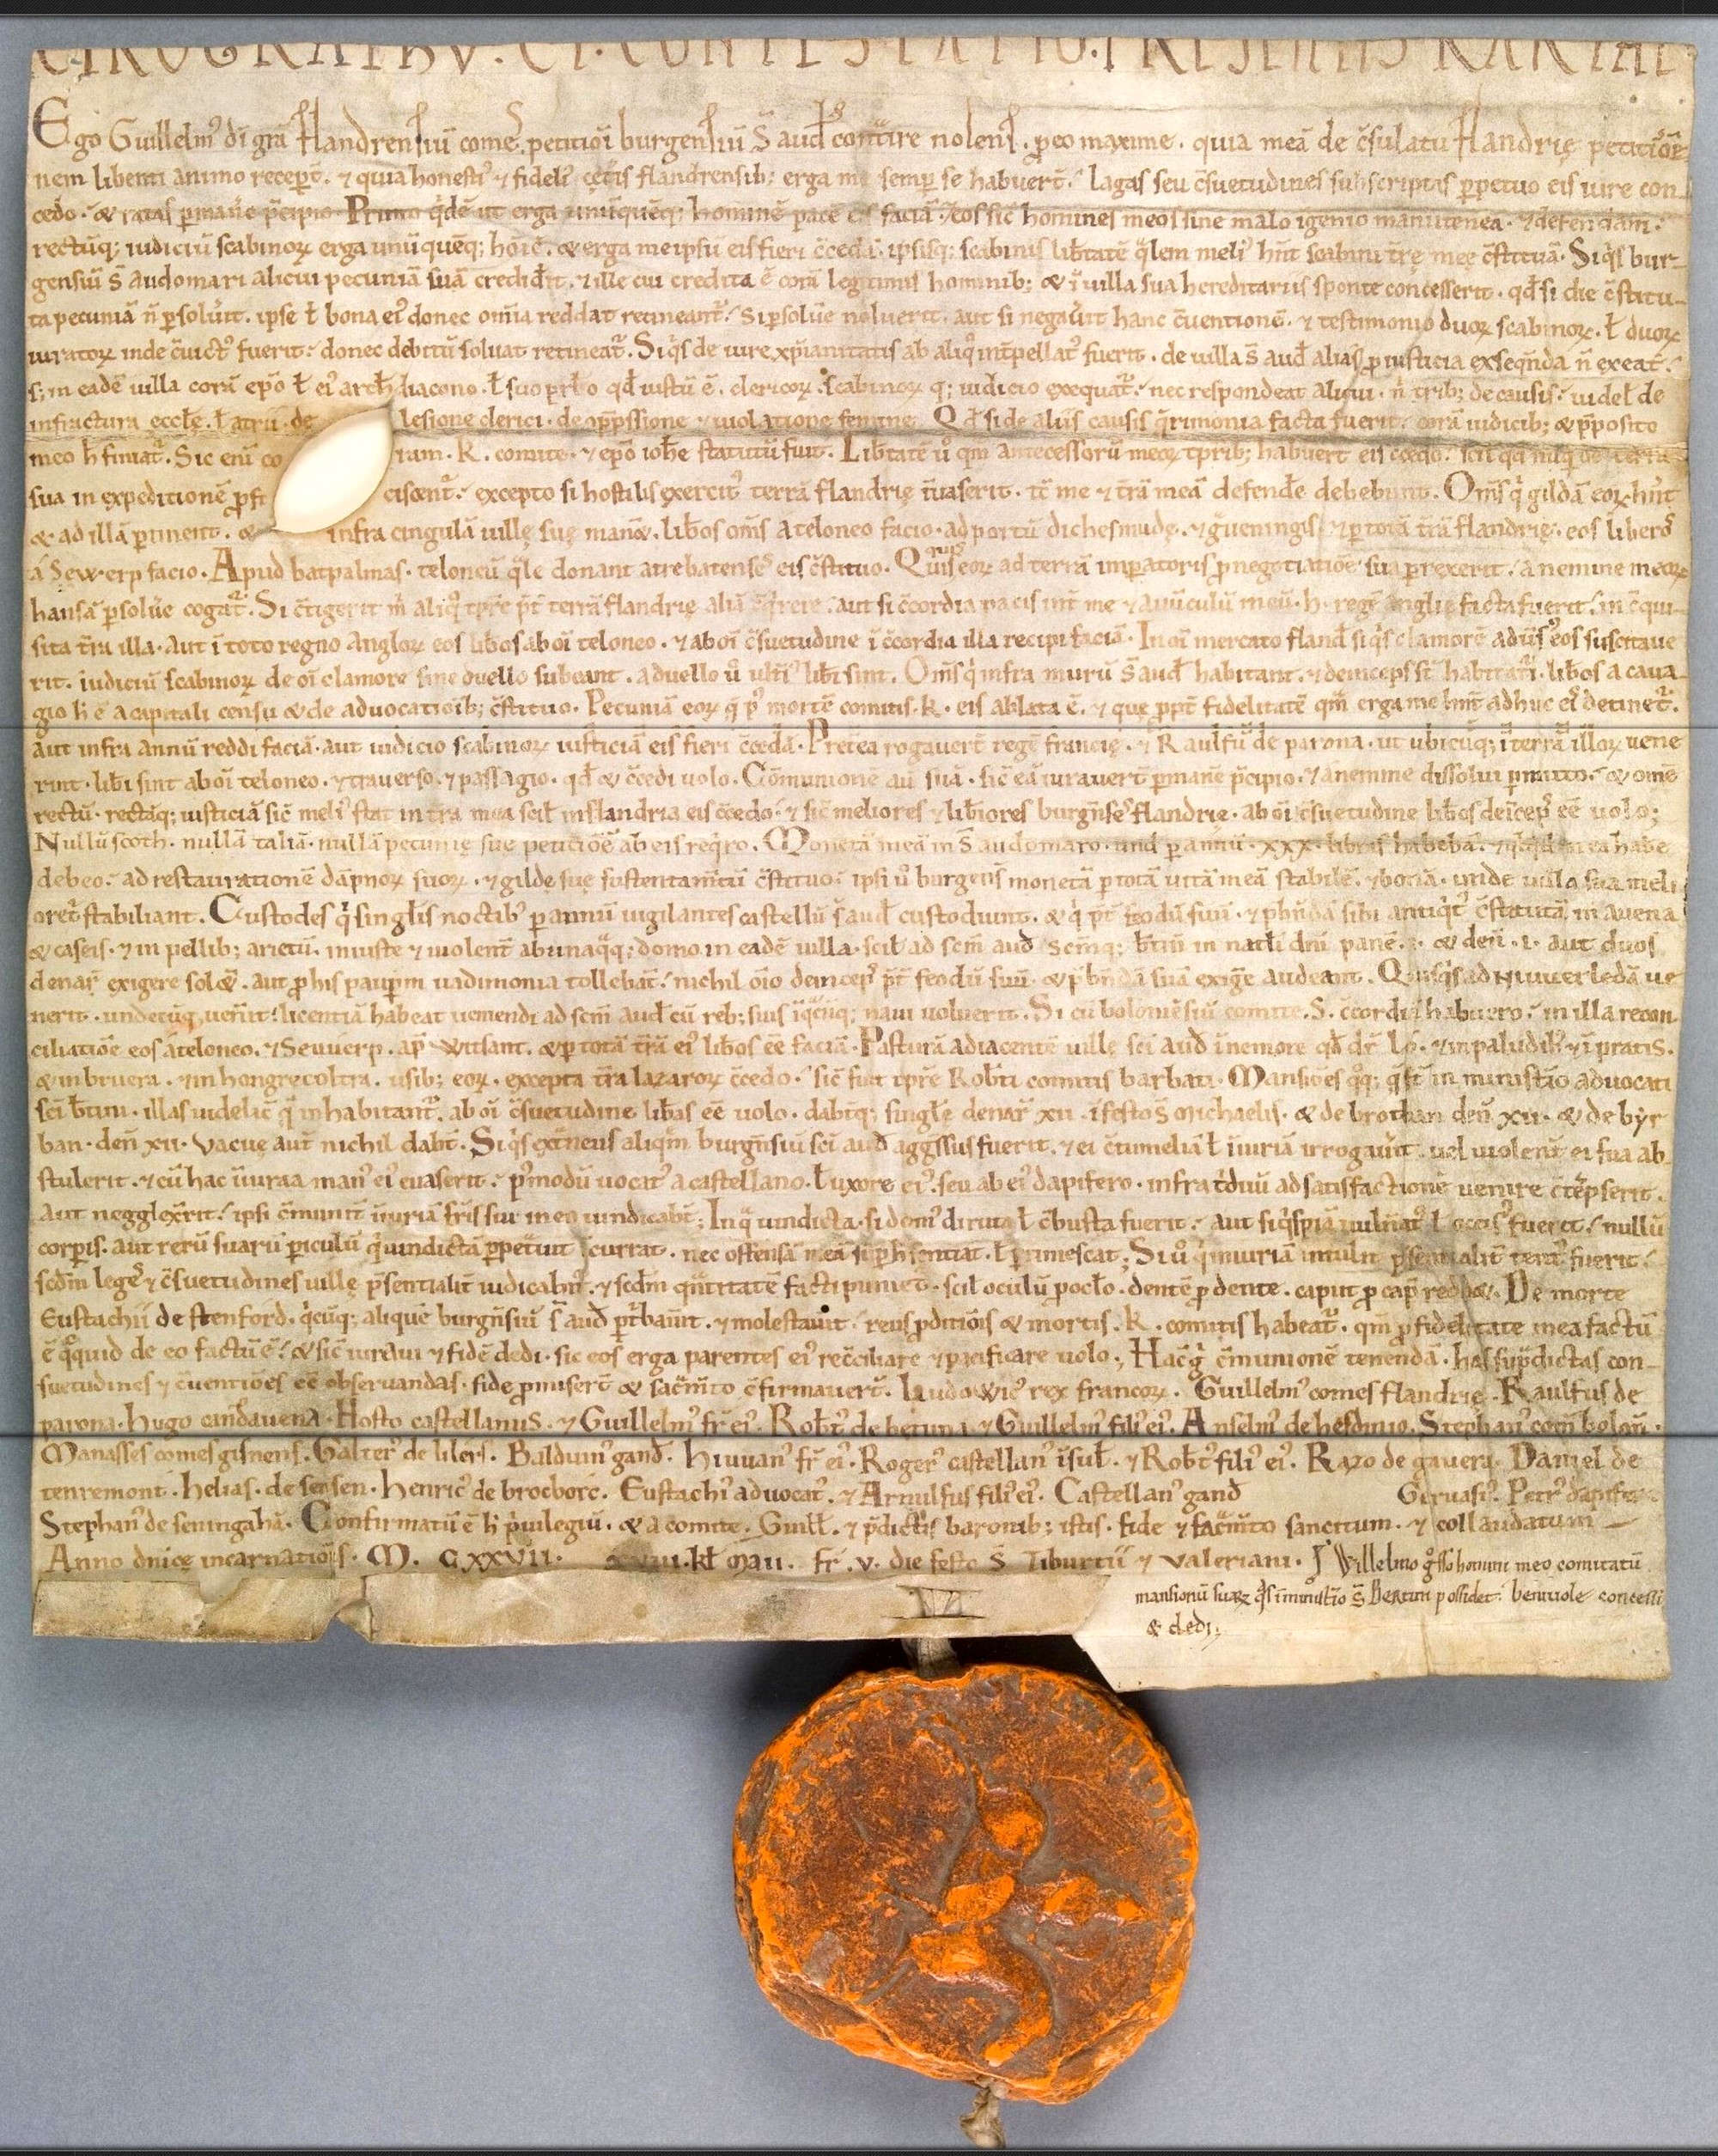 CIROGRAPHV. ET. CONTESTATIO. PRESENTIS KARTHE
Ego Guillelm' di gra Flandrensiū comes petitioi burgensiū S̄ aud contire nolens. p eo maxime. quia meā de c̄sulatu Flandrię petitiō
nem libenti animo recepert. ⁊ quia honesti' ⁊ fideli' cęt̄is flandrensib; erga me semp se habuert. lagas seu c̄suetudines subscriptas ppetuo eis iure con
cedo. & ratas pmane p̄cipio. Primo qͥdē ut erga unūquēq; hominē pacē eis faciā. ⁊ eos sic̄ homines meos sine malo īgenio manuteneā. ⁊ defendam.
rectūq; iudiciū scabinoꝝ erga unūquēq; hoīē. & erga me ipsū eis fieri c̄cedā. ipsisq; scabinis lib̄tatē qͣlem meli' hn̄t scabini tr̄ę meę c̄stituā. Siqͥs bur-
gensiū S̄ audomari alicui pecuniā suā crediderit. ⁊ ille cui credita ē corā legitimis hominib; & ī uilla sua hereditariis sponte concesserit. qd̄ si die c̄stitu-
ta pecuniā n̄ psoluit. ipse ł bona ei' donec om̄ia reddat retineant. Si psoluē noluerit. aut si negauit hanc c̄uentionē. ⁊ testimonio duoꝝ scabinoꝝ. ł duoꝝ
iuratoꝝ inde c̄uict' fuerit: donec debitū soluat retineat. Siqͥs de iure xp̄ianitatis ab aliqͦ int̄pellat' fuerit. de uilla S̄ aud alias p iusticia exseqn̄da n̄ exeat.
s; in eadē uilla corā ep̄o ł ei' archidiacono. ł suo prb̄o qd iustū ē. clericoꝝ. scabinoꝝ q; iudicio exequat. nec respondeat alicui. n̄ trib; de causis: uidel de
infractura eccłę. ł atrii. de lesione clerici. de opp̄ssione ⁊ uiolatione feminę. Qd̄ si de aliis causis qͥrimonia facta fuerit: corā iudicib; & p̄posito
meo h̄ finiat. Sic eni co ram. K. comite. ⁊ ep̄o ioh̄e statutū fuit. Lib̄tatē ū qm antecessorū meoꝝ tp̄rib; habuert eis c̄cedo. scil qd̄ nūq de terra
sua in expeditionē pfi ciscent. excepto si hostilis exercit' terrā flandrię īuaserit. tc̄ me ⁊ tr̄ā meā defendē debebunt. Om̄s qͥ gildā eoꝝ hn̄t
& ad illā ptinent. & infra cingulā uillę suę manē. lib̄os om̄s a teloneo facio. ad portū dichesmudę. ⁊ ḡueningis. ⁊ p totā tr̄ā flandrię. eos liberos
á Sewerp facio. Apud batpalmas. teloneū qͣle donant atrebatenses eis c̄stituo. Quisqͥs eoꝝ ad terrā impatoris p negotiatiōe sua prexerit. a nemine meoꝝ
hansā psoluē cogat. Si c̄tigerit m̄ aliqͦ tp̄re p̄t terrā flandrię aliā c̄qͥrere. aut si c̄cordia pacis int̄ me ⁊ auūculū meū. H. regē anglię facta fuerit: in c̄qui-
sita tr̄a illa. aut ī toto regno angloꝝ eos lib̄os ab oi teloneo. ⁊ ab oi c̄suetudine ī c̄cordia illa recipi faciā. In oi mercato fland siqͥs clamorē aduīs' eos suscitaue
rit. iudiciū scabinoꝝ de oi clamore sine duello subeant. a duello ū ult̄i' lib̄i sint. Om̄s qͥ infra murū S̄ aud habitant. ⁊ deinceps st̄ habitat̄i. lib̄os a caua-
gio h̄ ē a capitali censu & de aduocatiōib; c̄stituo. Pecuniā eoꝝ q̄ p' mortē comitis. K. eis ablata ē. ⁊ quę ppt̄ fidelitatē qm̄ erga me hn̄t adhuc eis detinet.
aut infra annū reddi faciā. aut iudicio scabinoꝝ iusticiā eis fieri c̄cedā. Pret̄ea rogauert regē francię. ⁊ Raulfū de parona. ut ubicūq; ī terrā illoꝝ uene
rint. lib̄i sint ab oi teloneo. ⁊ trauerso. ⁊ passagio. qd̄ & c̄cedi uolo. Cōmunionē aū suā. sic̄ eā iurauert pmanē p̄cipio. ⁊ a nemine dissolui pmitto. & omē
rectū. rectāq; iusticiā sic̄ meli' stat in tr̄a mea scil in flandria eis c̄cedo. ⁊ sic̄ meliores ⁊ lib̄iores burgn̄ses flandrię. ab oi c̄suetudine lib̄os deīceps eē uolo;
Nullū scoth. nullā taliā. nullā pecunię suę petitiōē ab eis reqͥro. Monetā meā in S̄ audomaro. und̄ p annū. xxx. libras habebā. ⁊ qͥcqͥd in ea habē
debeo: ad restaurationē dāpnoꝝ suoꝝ. ⁊ gildę suę sustentam̄tū c̄stituo. ipsi ū burgēs monetā p totā uitā meā stabilē. ⁊ bonā. unde uilla sua meli
oret stabiliant. Custodes qͥ singlis noctib' p annū uigilantes castellū S̄ aud custodiunt. & qͥ p̄t feodū suū. ⁊ pb̄ndā sibi antiqͥt' c̄stitutā in auena
& caseis. ⁊ in pellib; arietū. iniuste ⁊ uiolent̄ ab unaqͣq; domo in eadē uilla. scil ad scm̄ aud scm̄q; b̄tinū in natli dn̄i panē. & deñ. 1. aut duos
denar exigere solēt. aut p his paupm uadimonia tollebāt: nichil oīo deinceps p̄t feodū suū. & pb̄ndā suā exiḡe audeant. Quisqͥs ad Niuuerledā ue
nerit. undecūq; uen̄it: licentiā habeat ueniendi ad scm̄ aud cū reb; suis ī qͣcūq; naui uoluerit. Si cū boloniēsiū comite. S. c̄cordiā habuero: in illa recon
ciliatiōe eos a teloneo. ⁊ Seuuerp. ap̄ Witsant. & p totā tr̄ā ei' lib̄os eē faciā. Pasturā adiacentē uillę sci aud ī nemore qd̄ dr̄ Lo. ⁊ in paludib'. ⁊ ī pratis.
& in bruera. ⁊ in hongrecoltra. usib; eoꝝ. excepta tr̄a lazaroꝝ c̄cedo. sic̄ fuit tp̄re Rob̄ti comitis barbati. Mansiōes qͦq; q̄ st̄ in minist̄io aduocati
sci b̄tini. illas uidelic̄ q̄ inhabitant. ab oi c̄suetudine lib̄as eē uolo. dabūtq; singlę denar xii. ī festo S̄ michaelis. & de brotban deñ xii. & de byr
ban. deñ xii. Vacuę aut̄ nichil dabt. Siqͥs ext̄neus aliqm̄ burgn̄siū sci aud aggr̄ssus fuerit. ⁊ ei c̄tumeliā ł iniuriā irrogauit. uel uiolent̄ ei sua ab
stulerit. ⁊ cū hac iniuria man' ei' euaserit: p'modū uocat' a castellano. ł uxore ei'. seu ab ei' dapifero. infra t̄duū ad satisfactionē uenire c̄tēpserit.
aut negglexerit: ipsi c̄munit̄ iniuriā fr̄is sui in eo uindicabt; In qͣ uindicta. si dom' diruta ł c̄busta fuerit: aut siqͥspiā uulnerat' ł occis' fuerit: nullū
corpis. aut rerū suarū piculū qͥ uindictā ppetrauit īcurrat. nec offensā meā sup h̄ sentiat. ł ptimescat; Si ū qͥ iniuriā intulit p̄sentialit̄ tent' fuerit:
scdm leges ⁊ c̄suetudines uillę p̄sentialit̄ iudicabit̄. ⁊ scdm qn̄titatē facti puniet. scil oculū p oclo. dentē p dente. caput p cap̄ reddet. De morte
Eustachii de stenford. qͥcūq; aliquē burgn̄siū S̄ aud pt̄bauit. ⁊ molestauit: reus pditiōis & mortis. K. comitis habeat. qm̄ p fidelitate mea factū
ē qͥcquid de eo factū ē: & sic̄ iuraui ⁊ fidē dedi. sic eos erga parentes ei' rec̄ciliare ⁊ pacificare uolo; Hac̄ ḡ c̄munionē tenendā. has sup̄dictas con-
suetudines ⁊ c̄uentiōes eē obseruandas. fide pmisert & sacm̄to c̄firmauert. Ludowic' rex francoꝝ. Guillelm' comes flandrię. Raulfus de
parona. Hugo candauena. Hosto castellanus. ⁊ Guillelm' fr̄ ei'. Rob̄t' de betuna. ⁊ Guillelm' fili' ei'. Anselm' de hesdinio. Stephan' com̄ boloñ.
Manasses comes gisnens. Galter' de lilers. Balduin' gand. Hiuuan' fr̄ ei'. Roger' castellan' īsul. ⁊ Rob̄t' fili' ei'. Razo de gauera. Daniel de
tenremont. helias. de sensen. henric' de brocborc. Eustachi' aduocat'. ⁊ Arnulfus fili' ei'. Castellan' gand Geruasi'. Petr' dapifer.
Stephan' de seningahā. Confirmatū ē h̄ p̄uilegiū. & a comite. Guill. ⁊ p̄dictis baronib; istis. fide ⁊ sacm̄to sancitum. ⁊ collaudatum
Anno dn̄icę incarnatiōis. M. CXXVII. xviii. kł maii. fr̄. v. die festo S̄ Tiburtii ⁊ Valeriani. Willelmo homini meo comitatū
mansionū suaꝝ qͣs ī minist̄io S̄ Bertini possidet: beniuole concessi
& dedi;